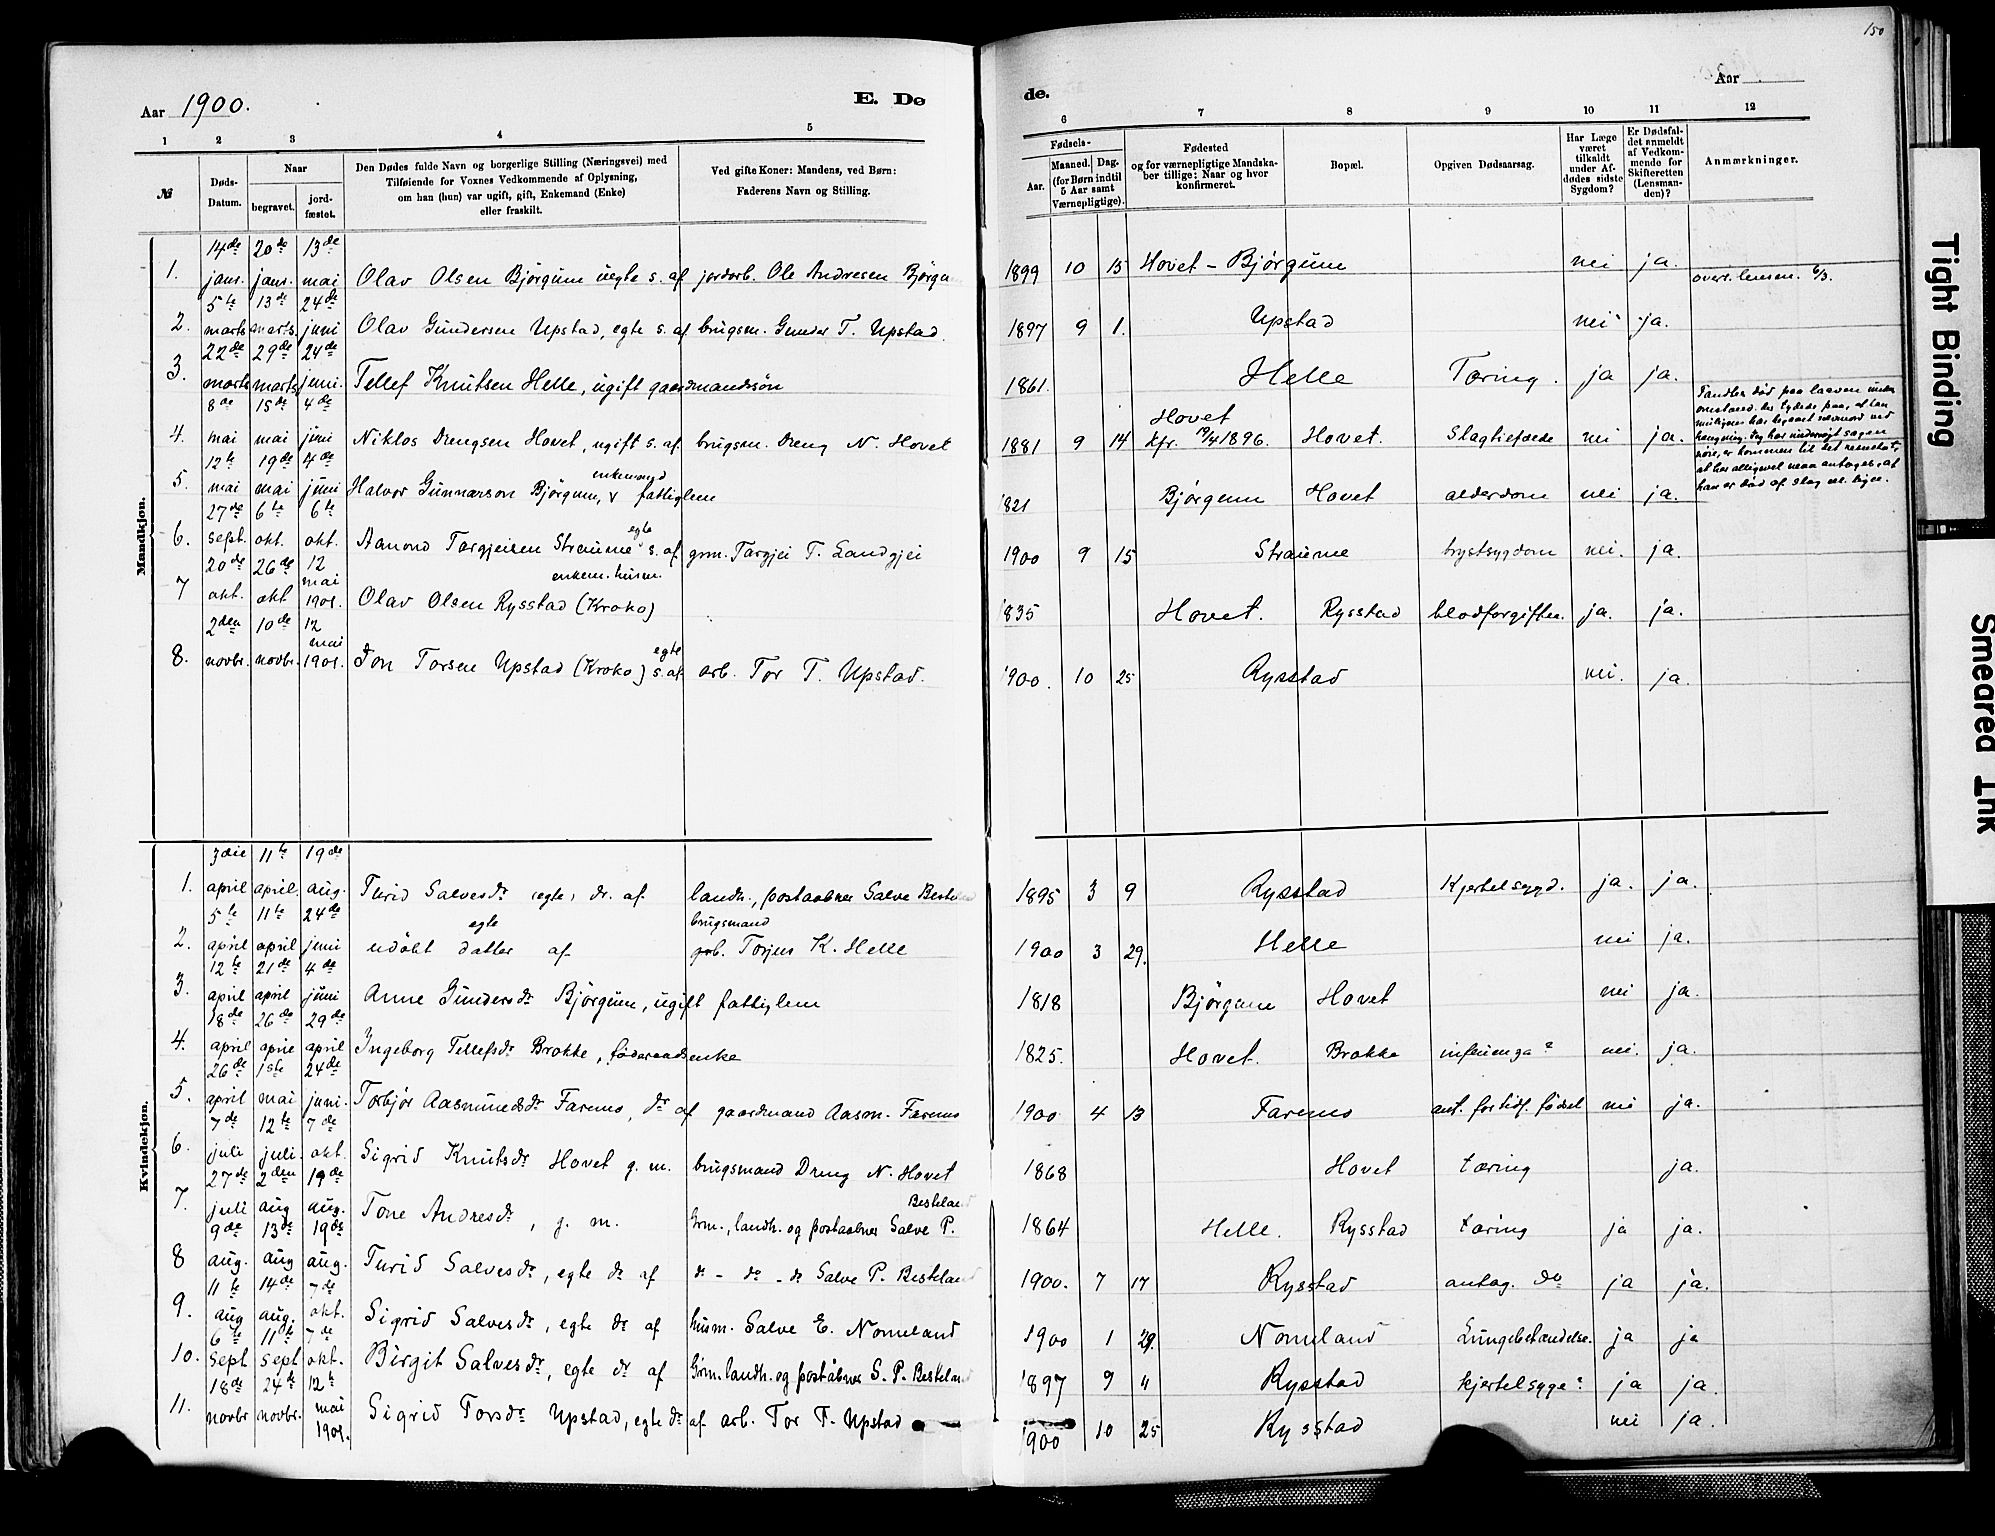 150
Aar 1900. E. Dø
de. Aar
1 2 3 4 5
6 7 8 9 10 11 12
№
Døds-Datum.
Naar
begravet.
jord-fæstet.
Den Dødes fulde Navn og borgerlige Stilling (Næringsvei) med
Tilføiende for Voxnes Vedkommende af Oplysning,
om han (hun) var ugift, gift, Enkemand (Enke)
eller fraskilt.
Ved gifte Koner: Mandens, ved Børn:
Faderens Navn og Stilling.
Fødsels-
Aar.
Maaned. Dag.
(for Børn indtil
5 Aar samt
Værnepligtige).
Fødested
og for værnepligtige Mandska-
ber tillige: Naar og hvor
konfirmeret.
Bopæl.
Opgiven Dødsaarsag.
Har Læge
været
tilkaldt
under Af-
dødes sidste
Sygdom?
Er Dødsfal-
det anmeldt
af Vedkom-
mende for
Skifteretten
(Lensman-
den)?
Anmærkninger.
Mandkjøn.
1. 14de jans. 20de jans. 13de mai Olav Olsen Bjørgum uegte s. af jordarb. Ole Andresen Bjørgu 1899 10 15 Hovet - Bjørgum nei ja. overs. lensm. 6/3.
2. 5te marts 13de marts. 24de juni Olav Gundersen Upstad, egte s. af brugsm. Gunder T. Upstad. 1897 9 1. Upstad nei ja.
3. 22de marts 29de marts 24de juni. Tellef Knutsen Helle, ugift gaardmandssøn 1861. Helle Tæring. ja ja.
4. 8de mai 15de mai 4de juni Niklos Drengsen Hovet, ugift s. af. brugsm. Dreng N. Hovet 1881 9 14 Hovet kfr. 19/4 1896. Hovet. Slagtilfælde nei ja.
5. 12te mai 19de mai 4de juni Halvor Gunnarson Bjørgum, enkemand & fattiglem 821 Bjørgum Hovet alderdom nei ja.
6. 27de sept. 6te okt. 6te okt. Aanond Targjeisen Straume egte s. af grm. Targjei T. Landgjei 1900 9 15 Straume brystsygdom nei. ja.
7 20de okt. 26de okt 12 mai 1901. Olav Olsen Rysstad (Kroko) enkem. husm. 835 Hovet. Rysstad blodforgiften. ja. ja.
8. 2den novbr. 10de novbr. 12 mai 1901. Jon Torsen Upstad (Kroko) egte s. af arb. Tor T. Upstad. 1900. 10 25 Rysstad nei. ja.
Kvindekjøn.
1. 3die april 11te april. 19de aug. Turid Salvesdr egte dr. af. landh., postaabner Salve Bestelad 1895 3 9 Rysstad Kjertelsygd. ja. ja.
2. 5te april 11te april 24de juni udøbt egte datter af brugsmand Torjus K. Helle 1900 3 29. Helle nei ja.
3. 12te april 21de april 4de juni Anne Gundersdr Bjørgum, ugift fattiglem 1818 Bjørgum Hovet nei ja.
4. 18de april 26de april 29de april Ingeborg Tellefsdr Brokke, føderaadsenke 1825. Hovet. Brokke influenza? nei. ja.
5. 26de april 1ste mai 24de juni. Torbjør Aasmundsdr Faremo, dr af gaardmand Aasm. Faremo 1900 4 13 Faremo ant. for tidl. fødsel nei ja.
6. 7de juli 12te juli. 7de okt. Sigrid Knutsdr Hovet g. m. brugsmand Dreng N. Hovet 1868 Hovet tæring ja.
7. 27de juli 2den aug 19de aug. Tone Andresdr, g. m. Grm., landh. og postaabner Salve P. Besteland 1864 Helle. Rysstad tæring ja ja.
8 9de aug. 13de aug 19de aug. Turid Salvesdr, egte dr af do - do - do Salve P. Besteland 1900. 7 17 Rysstad antag. do ja ja.
9. 11te aug 14de aug. 7de okt. Sigrid Salvesdr, egte dr af husm. Salve E. Nomeland 1900 1 29. Nomeland Lungebetændelse. ja ja
10. 6te sept 11te sept 7de okt. Birgit Salvesdr, egte dr af Grm. landh. og poståbner S. P. Besteland 1897 9 " Rysstad kjertelsyge? ja ja.
11. 18de novbr 24de novbr. 12te mai 1901. Sigrid Torsdr Upstad, egte dr af arb. Tor T. Upstad 1900 10 25 Rysstad nei ja.
Tight Binding
Smeared Ink